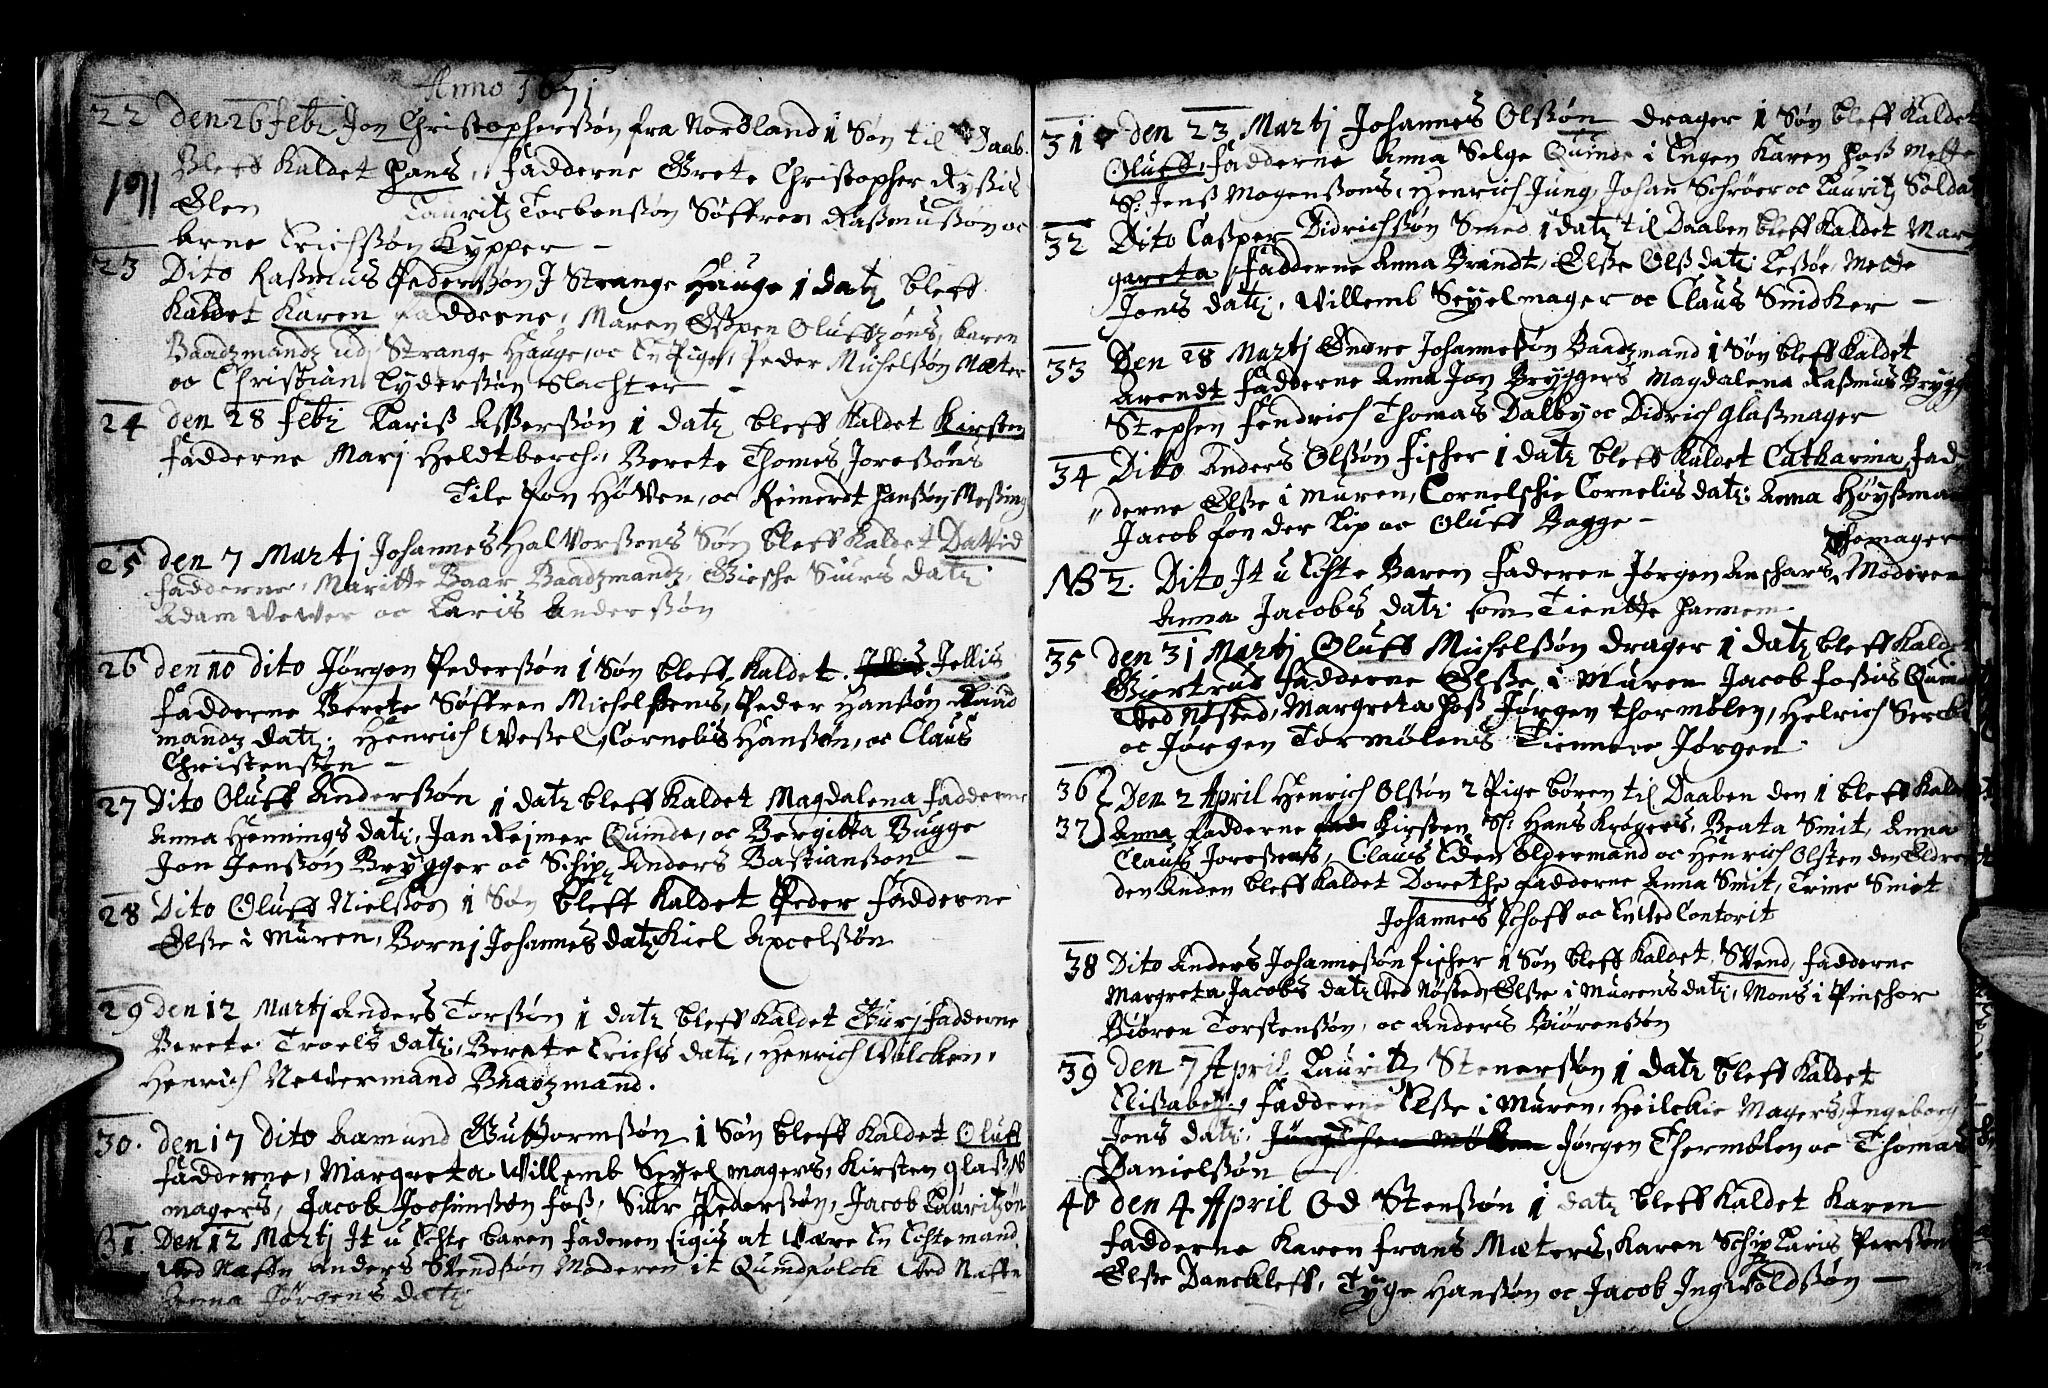 Anno 1671
22 den 26 febr Jon Christopherssøn fra Nordland 1 Søn til Daab.
Bleff Kaldet Hans, fadderne Grete Christopher Ryssis
191
Elen Lauritz Torbenssøn Søffren Rasmussøn oc
Arne Erichssøn Kypper –
23 Dito Rasmus Pederssøn J Strange Hauge 1 datr bleff
Kaldet Karen fadderne, Maren Espen Oluffzøns, Karen
Baadzmandz udj Strange Hauge, oc En Pige, Peder Michelssøn Mæter
oc Christian Lyderssøn Slachter –
24 den 28 febr Lariss Asserssøn 1 datr bleff Kaldet Kirsten
fadderne Marj Heldtberch, Berete Thomes Joressøns
Tile von Høven, oc Reinerdt Hanssøn Messing
25 den 7 Martj Johannes Halvorssøns Søn bleff Kaldet David
fadderne, Maritte Baar Baadzmandz, Giesche Siurs datr
Adam Wewer oc Laris Anderssøn
26 den 10 dito Jørgen Pederssøn 1 Søn bleff Kaldet Jellis
fadderne Berete Søffren Michelssens, Peder Hanssøn Raad
mandz datr, Henrich Wessel, Cornelis Hanssøn, oc Claus
Christenssøn –
27 Dito Oluff Anderssøn 1 datr bleff Kaldet Magdalena fadderne
Anna Hennings datr, Jan Reimer Quinde, oc Bergitta Bugge
Jon Jenssøn Brygger oc Schipr Anders Bastianssøn –
28 Dito Oluff Nielssøn 1 Søn bleff Kaldet Peder fadderne
Elsse i Muren, Bornj Johannes datr Kiel Axcelssøn
29 den 12 Martj Anders Torssøn 1 datr bleff Kaldet Gurj fadderne
Berete Troels datr, Berete Erichs datr, Henrich Wilcken,
Henrich Newermand Baadzmand.
30. den 17 Dito Aamund Guttormssøn 1 Søn bleff Kaldet Oluff
fadderne, Margreta Willemb Seyelmagers, Kirsten glass
magers, Jacob Jochimssøn foss, Siur Pederssøn, Jacob Lauritzøn
NB 1. Den 12 Martj It u Echte baren faderen sigis at Være En Echtemand
Ved Naffn Anders Svendssøn Moderen it Quindfolck Ved Naffn
Anna Jørgens datr
31 den 23 Martj Johannes Olssøn drager 1 Søn bleff Kaldet
Oluff, fadderne Anna Selge Quinde i Engen Karen Hoss Mette
S: Jenss Mogenssøns, Henrich Jung, Johan Schrøer oc Lauritz Solda
32 Dito Casper Didrichssøn Smed 1 datr til Daaben bleff Kaldet Mar
gareta, fadderne Anna Brandt, Elsse Olss datr Lessøe, Mette
Jons datr, Willemb Seyelmager oc Claus Snidker –
33 Den 28 Martj Endre Johannessøn Baadzmand 1 Søn bleff Kaldet
Arendt fadderne Anna Jon Bryggers Magdalena Rasmus Brygg
Stephen Fendrich Thomas Dalby oc Didrich glassmager
34 Dito Anders Olssøn fischer 1 datr bleff Kaldet Catharina, fad
derne Elsse i Muren, Cornelschie Cornelis datr: Anna Høyssma
Jacob fon der Lip oc Oluff Bagge –
NB 2. Dito It u Echte Baren faderen Jørgen Anschars Schomager Moderen
Anna Jacobs datr. som Tiente hannem
35 den 31 Martj Oluff Michelssøn drager 1 datr bleff Kaldet
Giertrud fadderne Elsse i Muren Jacob fossis Quinde
Ved Nøsted, Margreta hoss Jørgen thormølen, Helrich Serck
oc Jørgen Tormølens Tienner Jørgen
36 Den 2 April Henrich Olssøn 2 Pige børen til Daaben den 1 bleff Kaldet
37 Anna fadderne Kirsten Sl: Hans Krøgers, Beata Smit, Anna
Clauss Joressens, Claus Eden Oldermand oc Henrich Olssen den Eldre
den Anden bleff Kaldet Dorethe fadderne Anna Smit, Trine Smit
Johannes Schoff oc En Ved Contorit
38 Dito Anders Johannessøn fischer 1 Søn bleff Kaldet, Svend, fadderne
Margreta Jacobs datr Ved Nøsted, Elsse i Murens datr, Mons i Pinschor
Biøren Torstenssøn, oc Anders Biørenssøn
39 den 7 April Lauritz Stenerssøn 1 datr bleff Kaldet
Elissabet, fadderne Elsse i Muren, Heilckie Magers, Ingeborg
Jons datr, Jørgen Thermølen oc Thomas
Danielssøn
40 den 4 April Od Stenssøn 1 datr bleff Kaldet Karen
fadderne Karen frans Mæters, Karen Schipr Laris Perssøns
Elsse Danckleff, Tyge Hanssøn oc Jacob Ingvoldssøn –